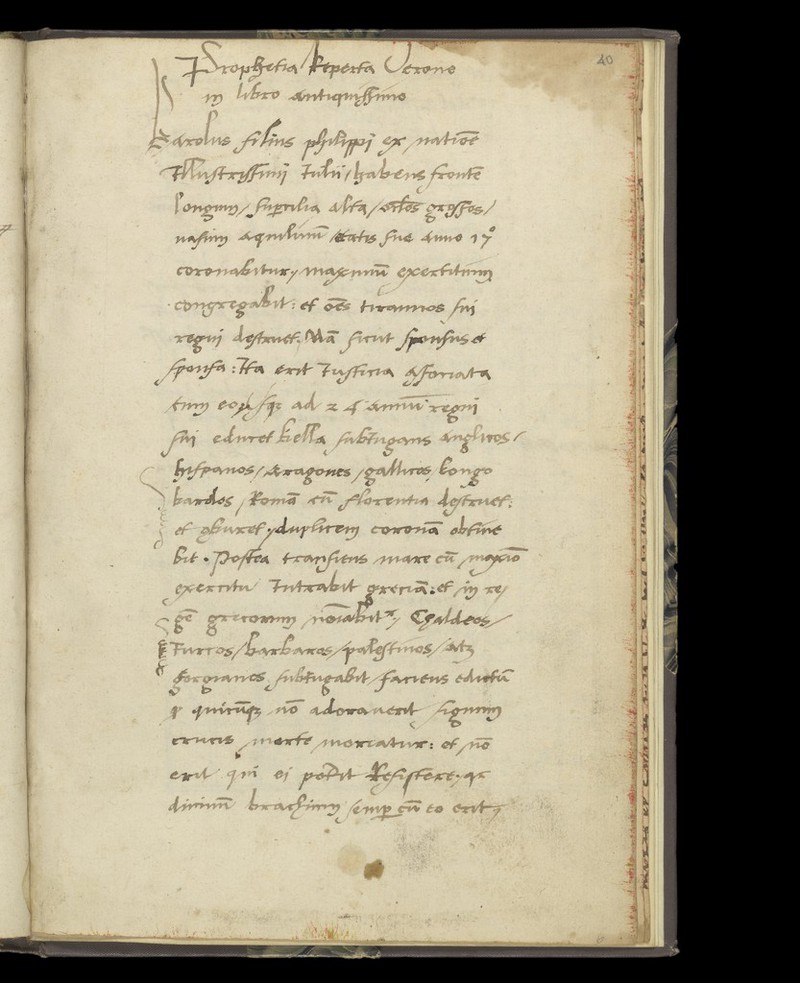 40
Prophetia Reperta Verone
in libro antiquissimo
Carolus filius philippi ex natiōe
Illustrissimi Iulii / habens frontē
longum / supercilia alta / oclos grossos /
nasum aquilinū etatis sue anno 17º
coronabitur, maximū exercitum
congregabit: et oēs tirannos sui
regni destruet. Nā sicut sponsus et
sponsa: Ita erit Iusticia associata
cum eo usq; ad 24 annū regni
sui educet bella subiugans anglicos /
hispanos / aragones / gallicos, longo
bardos / Romā cū florentia destruet:
et cōburet, duplicem coronā obtine
bit. Postea transiens mare cū maxīo
exercitu Intrabit greciā: et in re
gē grecorum noīabit, Chaldeos /
turcos / barbaros / palestinos / atq
georgianos subiugabit faciens edictū
qͥ quicūq; nō adoraverit signum
crucis morte moriatur: et nō
erit qui ei possit Resistere, qr
divinū brachium semp cū eo erit,